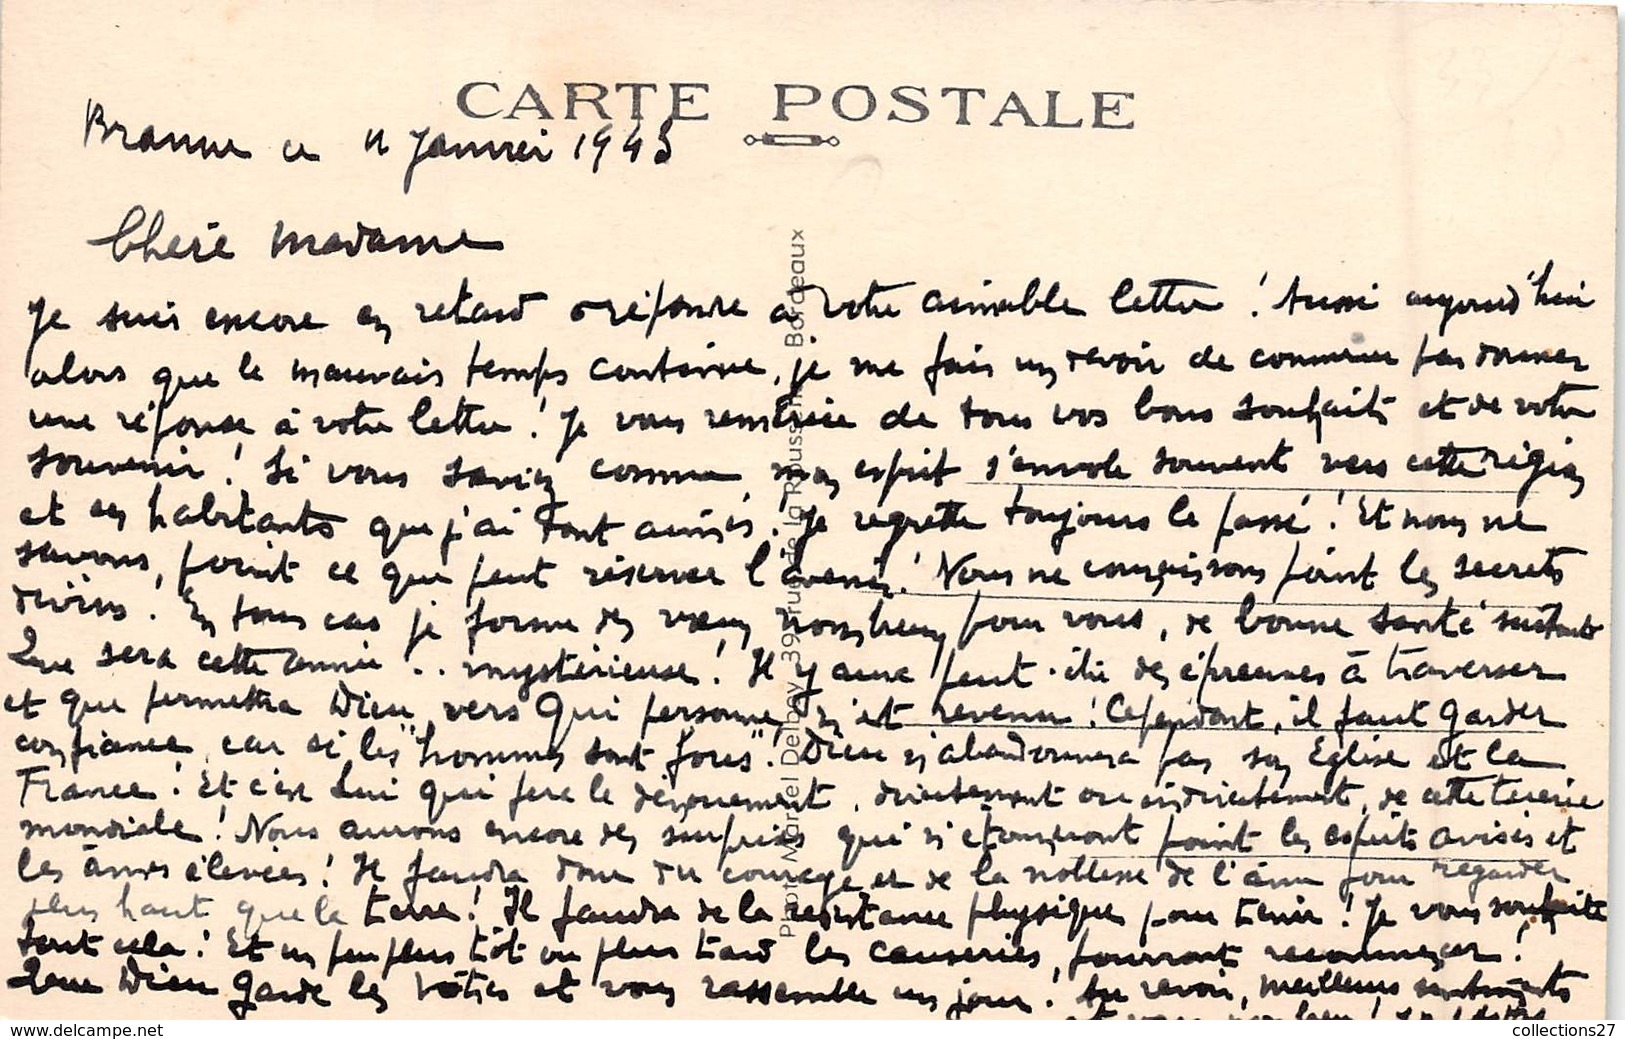 CARTE POSTALE
Branne ce 11 Janvier 1943
Chère Madame
Je suis encore en retard à répondre à votre aimable lettre ! Aussi aujourd'hui
alors que le mauvais temps continue, je me fais un devoir de commencer par donner
une réponse à votre lettre ! Je vous remercie de tous vos bons souhaits et de votre
souvenir ! Si vous saviez comme mon esprit s'envole souvent vers cette région
et ces habitants que j'ai tant aimés. Je regrette toujours le passé ! Et nous ne
savons point ce que peut réserver l'avenir ! Nous ne connaissons point les secrets
divins ! En tous cas je forme des vœux nombreux pour vous, de bonne santé surtout
Que sera cette année .. mystérieuse ! Il y aura peut-être des épreuves à traverser
et que permettra Dieu, vers Qui personne n'est revenu ! Cependant, il faut garder
confiance, car si les "hommes sont fous". Dieu n'abandonnera pas son Eglise et la
France ! Et c'est Lui qui fera le dénouement, directement ou indirectement, de cette tuerie
mondiale ! Nous aurons encore des surprises qui n'étonneront point les esprits avisés et
les âmes élevées ! Il faudra donc du courage et de la noblesse de l'âme pour regarder
plus haut que la terre ! Il faudra de la résistance physique pour tenir ! Je vous souhaite
tout cela ! Et un peu plus tôt ou plus tard les causeries, pourront recommencer !
Que Dieu garde les vôtres et vous rassemble un jour ! Au revoir, meilleurs sentiments
et
Photo Marcel Delboy, 39 rue de la Rousselle Bordeaux
collections27